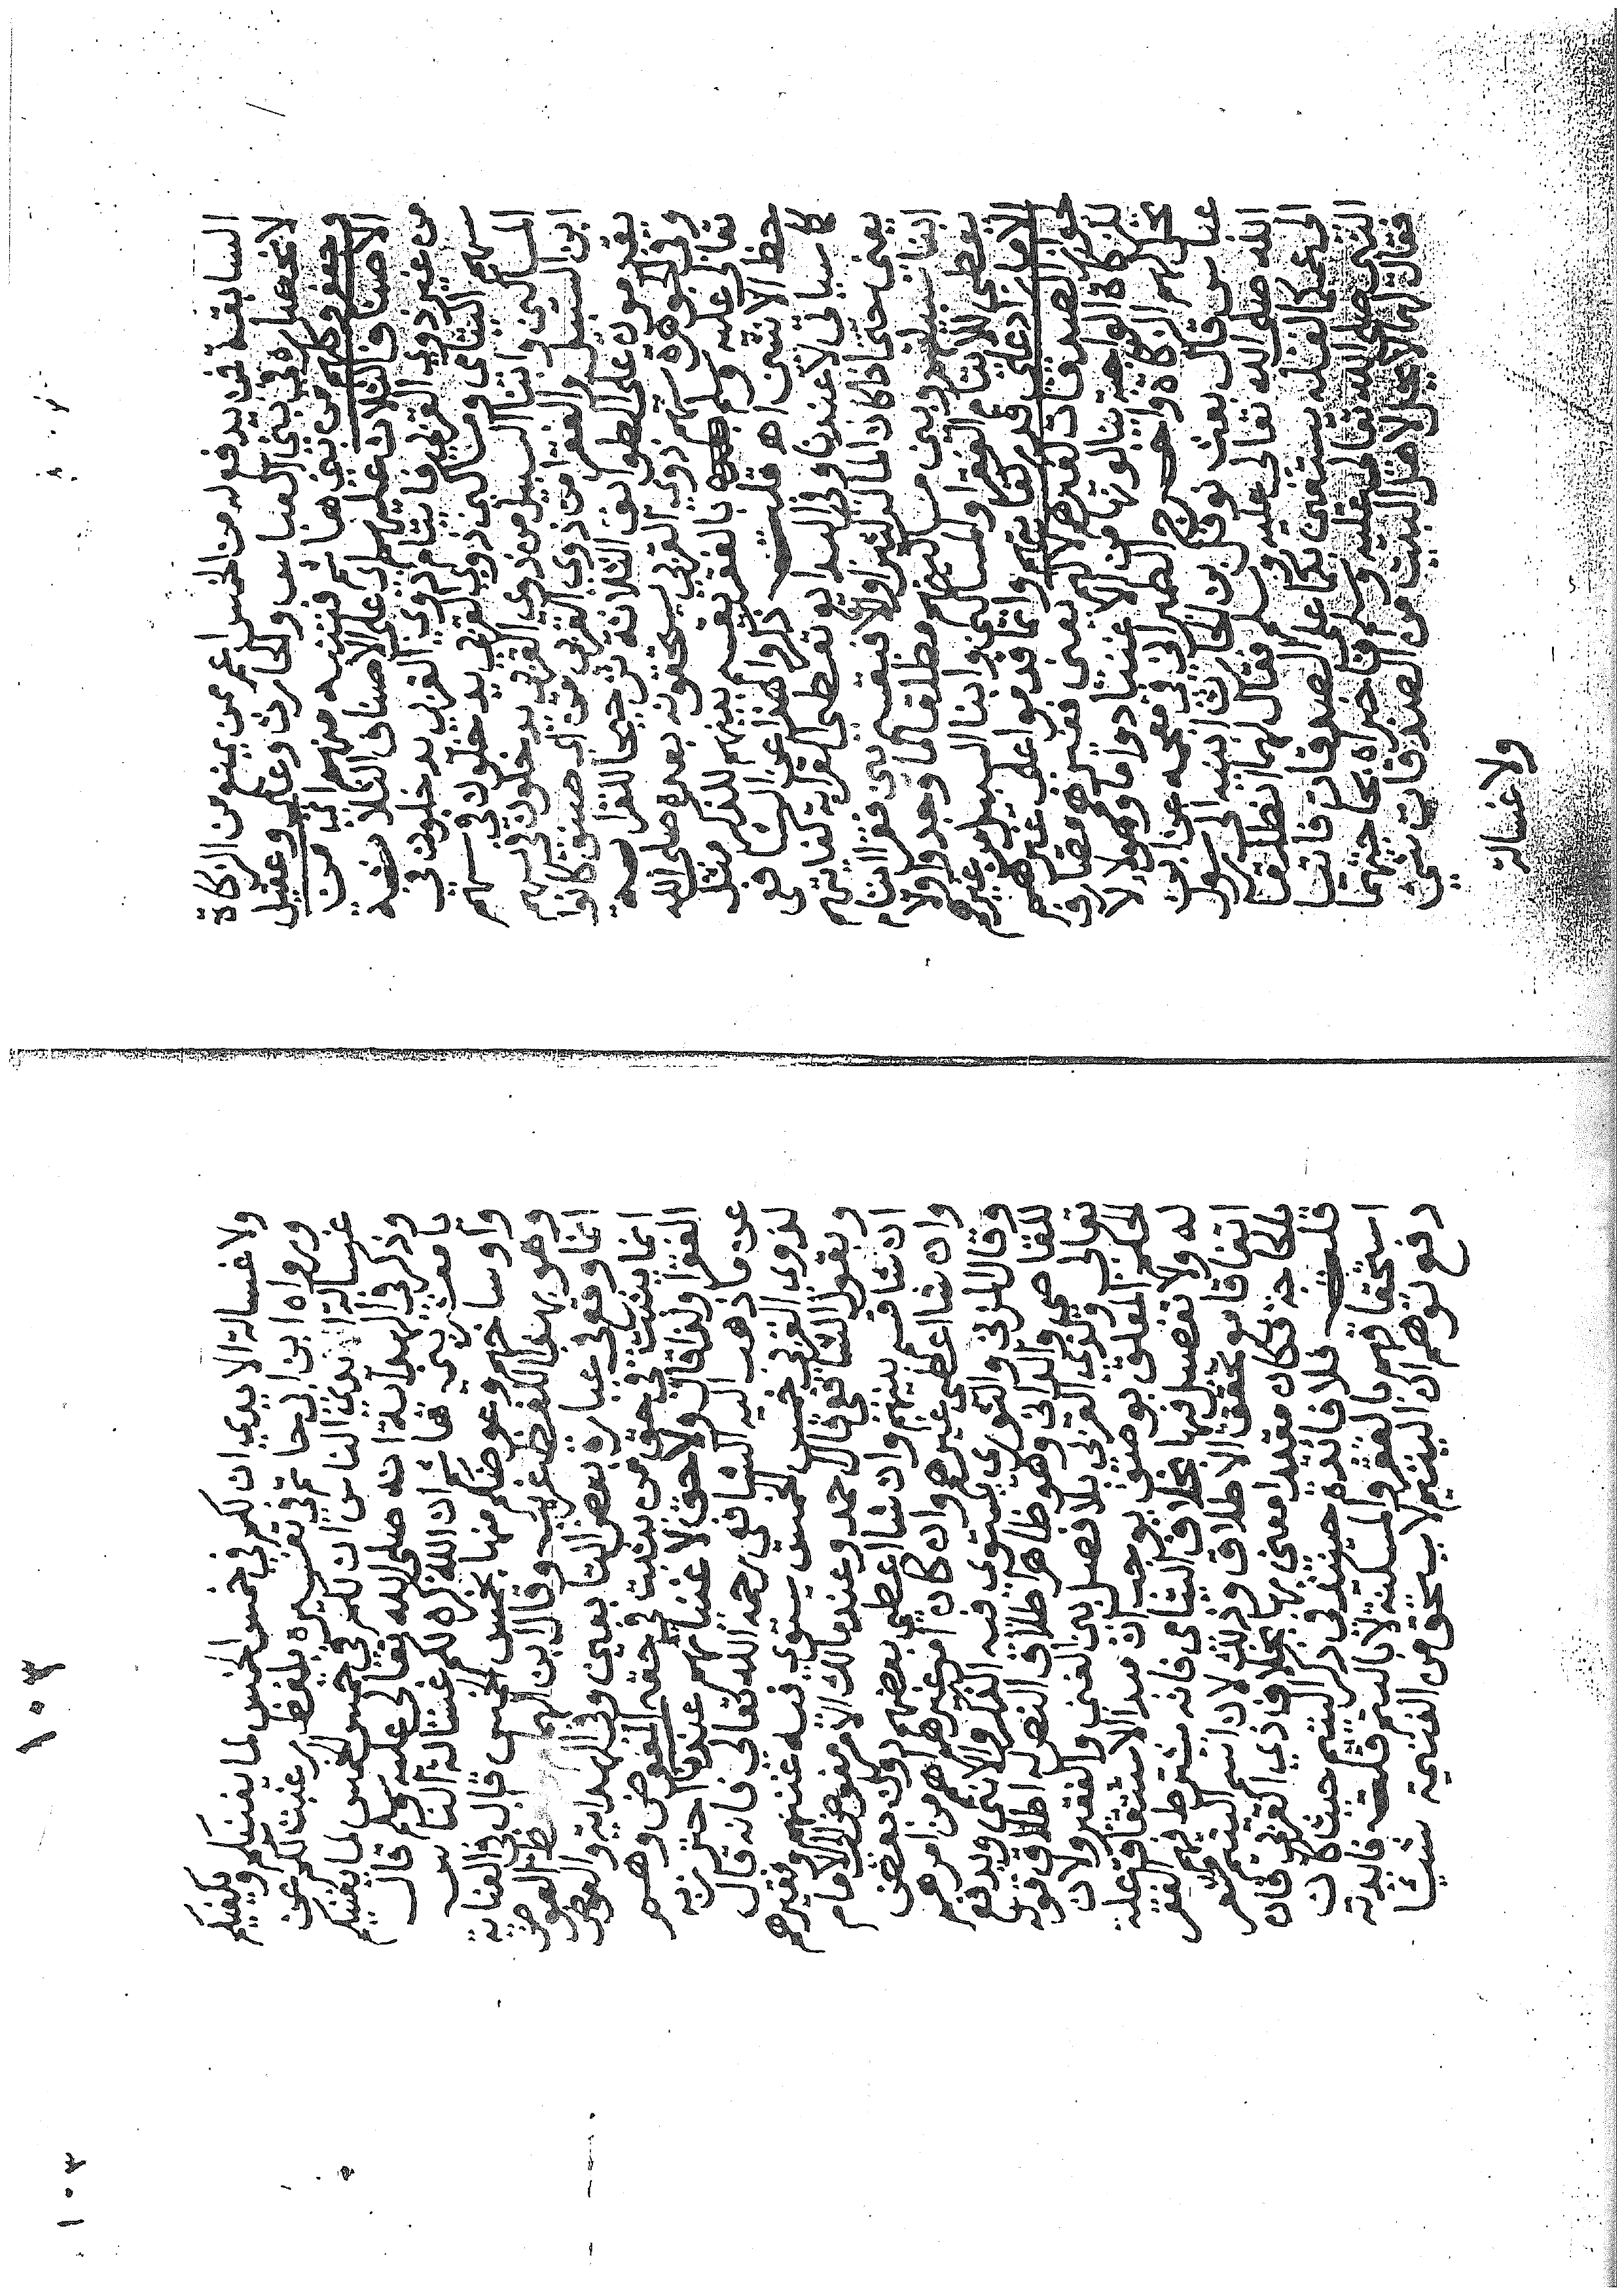 السابقة فمن يدفع له من الخمس اعم ممن يمنع من الزكاة
لانحصاره في بني العباس والحارث وعلي وعقيل
وجعفر وكلهم من بني هاشم فتنبه منهم اي من
الاصناف الثلاث عليهم اي على الاصناف الثلاثة
من غير ذوي القربى فايتام ذوي القربى يدخلون في
سهم اليتامى ومساكين ذوي القربى يدخلون في سهم
المساكين وابنا السبيل من ذوي القربى يدخلون في سهم
ابن السبيل والفقرا من ذوي القربى من اي صنف كانوا
يقدمون على الطوايف الثلاثة ترجيحا للقرابة
وفي الجوهرة سهم ذوي القربى يستحقونه بعده صلى الله
تعالى عليه وسلم بالفقر يقسم بينهم للذكر مثل
حظ الانثيين اه قلت ذكروا هذا عن الشافعي
كما سياتي لا عندنا وفي البدايع تعطى القرابة كفايتهم
يعني حتى اذا كان المال كثيرا ولا قسمة بين فقرا اليتامى
ابنا سبيلهم وبين مساكينهم مطلقا ما وجدوا ولا
يعطى للايتام الفقرا والمساكين وابنا السبيل من غيرهم
الا ما زاد على قدر كفايتهم وانما قدموا على غيرهم
لجواز الصدقات لغيرهم لا لهم يعني فقير
الزكاة الواجبة ينالونها من الاغنيا دواما وهولا لا
تحل لهم الزكاة اخرج الطبراني في معجمه عن ابن
عباس قال بعث نوفل بن الحارث ابنيه الى رسول
الله صلى الله تعالى عليه وسلم فقال لهما انطلقا
الى عمكما لعله يستعين بكما على الصدقات فاتيا
النبي صلى الله تعالى عليه وسلم فاخبراه بحاجتهما
فقال لهما لا يحل لاهل البيت من الصدقات شي
ولا غسالة
١٠٢
ولا غسالة الايدي ان لكم في خمس الخمس لما يغنيكم او يكفيكم
ورواه ابن ابي حاتم في تفسيره بلفظ رغبت لكم عن
غسالة ايدي الناس ان لكم في خمس الخمس لما يغنيكم
وذكر في الهداية انه صلى الله تعالى عليه وسلم قال
يا معشر بني هاشم ان الله كره لكم غسالة الناس
واوساخهم وعوضكم منها بخمس الخمس قال في العناية
وهو بهذا اللفظ غريب وقال ابن الهمام لفظ العوض
انما وقع في عبارة بعض التابعين وفي الهداية والعوض
انما يثبت في حق من يثبت في حقه المعوض وهم
الفقرا ولذا قال ولا حق لاغنيائهم عندنا احترز به
عن ما ذهب اليه الشافعي رحمه الله تعالى فانه قال
لذوي القربى خمس الخمس يستوي فيه غنيهم وفقيرهم
وبقول الشافعي قال احمد وعند مالك الامر مفوض الى الامام
ان شا قسم بينهم وان شا اعطى بعضهم دون بعض
وان شا اعطى غيرهم وان كان امر غيرهم اهم من امرهم
وقال المزني والثوري يستوي فيه الذكر والانثى ويدفع
للقاصي والداني وهو ظاهر اطلاق النص له اطلاق قوله
تعالى ولذي القربى بلا فصل بين الغني والفقير ولان
الحكم المعلق بوصف يوجب ان مبدا الاشتقاق علة
له ولا تفصيل فيها بخلاف اليتامى فانه يشترط فيهم الفقر
اتفاقا مع تحقق الاطلاق وذلك لان اسم اليتيم يشعر
بالحاجة فكان مقيدا معنى بها بخلاف ذي القربى فان
قلت فلا فايدة حينئذ في ذكر اليتيم حيث كان
استحقاقهم بالفقر والمسكنة لا باليتم قلت فايدته
دفع توهم ان اليتيم لا يستحق من الغنيمة شيئا
١٠٢